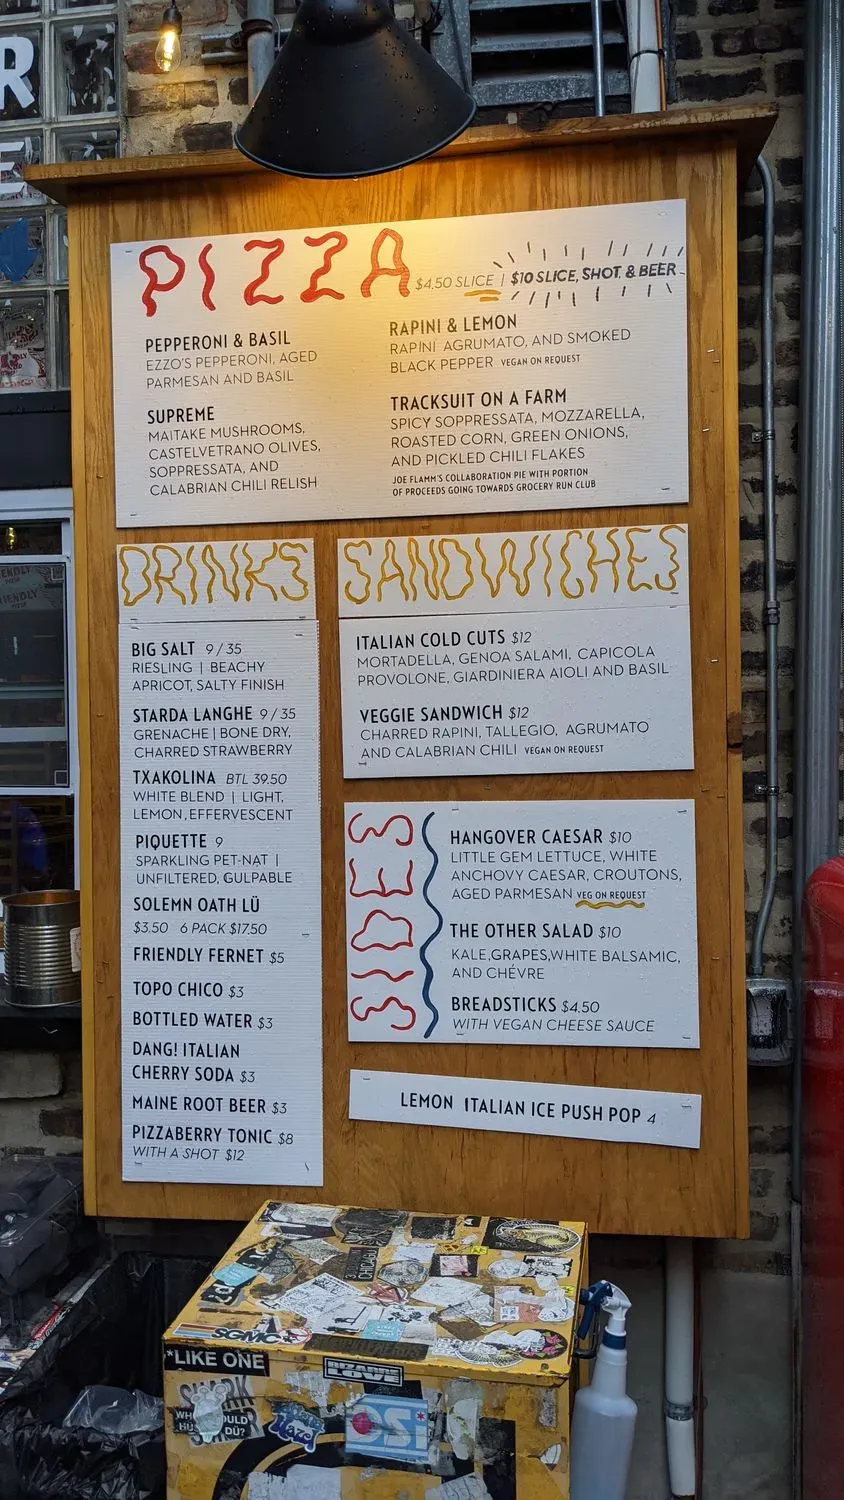 R
E
PIZZA $4.50 SLICE | $10 SLICE, SHOT, & BEER
PEPPERONI & BASIL
EZZO'S PEPPERONI, AGED
PARMESAN AND BASIL
SUPREME
MAITAKE MUSHROOMS,
CASTELVETRANO OLIVES,
SOPPRESSATA, AND
CALABRIAN CHILI RELISH
RAPINI & LEMON
RAPINI AGRUMATO, AND SMOKED
BLACK PEPPER VEGAN ON REQUEST
TRACKSUIT ON A FARM
SPICY SOPPRESSATA, MOZZARELLA,
ROASTED CORN, GREEN ONIONS,
AND PICKLED CHILI FLAKES
JOE FLAMM'S COLLABORATION PIE WITH PORTION
OF PROCEEDS GOING TOWARDS GROCERY RUN CLUB
DRINKS
BIG SALT 9/35
RIESLING | BEACHY
APRICOT, SALTY FINISH
STARDA LANGHE 9/35
GRENACHE | BONE DRY,
CHARRED STRAWBERRY
TXAKOLINA BTL 39.50
WHITE BLEND | LIGHT,
LEMON, EFFERVESCENT
PIQUETTE 9
SPARKLING PET-NAT |
UNFILTERED, GULPABLE
SOLEMN OATH LÜ
$3.50 6 PACK $17.50
FRIENDLY FERNET $5
TOPO CHICO $3
BOTTLED WATER $3
DANG! ITALIAN
CHERRY SODA $3
MAINE ROOT BEER $3
PIZZABERRY TONIC $8
WITH A SHOT $12
SANDWICHES
ITALIAN COLD CUTS $12
MORTADELLA, GENOA SALAMI, CAPICOLA
PROVOLONE, GIARDINIERA AIOLI AND BASIL
VEGGIE SANDWICH $12
CHARRED RAPINI, TALLEGIO, AGRUMATO
AND CALABRIAN CHILI VEGAN ON REQUEST
SIDES
HANGOVER CAESAR $10
LITTLE GEM LETTUCE, WHITE
ANCHOVY CAESAR, CROUTONS,
AGED PARMESAN VEG ON REQUEST
THE OTHER SALAD $10
KALE,GRAPES,WHITE BALSAMIC,
AND CHÉVRE
BREADSTICKS $4.50
WITH VEGAN CHEESE SAUCE
LEMON ITALIAN ICE PUSH POP 4
CHICAGO
SGMC
*LIKE ONE
BIZARRE
LOVE
OSI